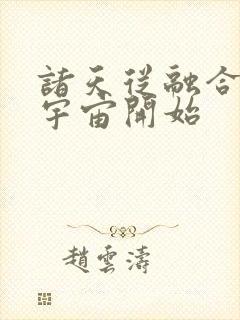 諸天從融合
宇宙開始
趙雲濤